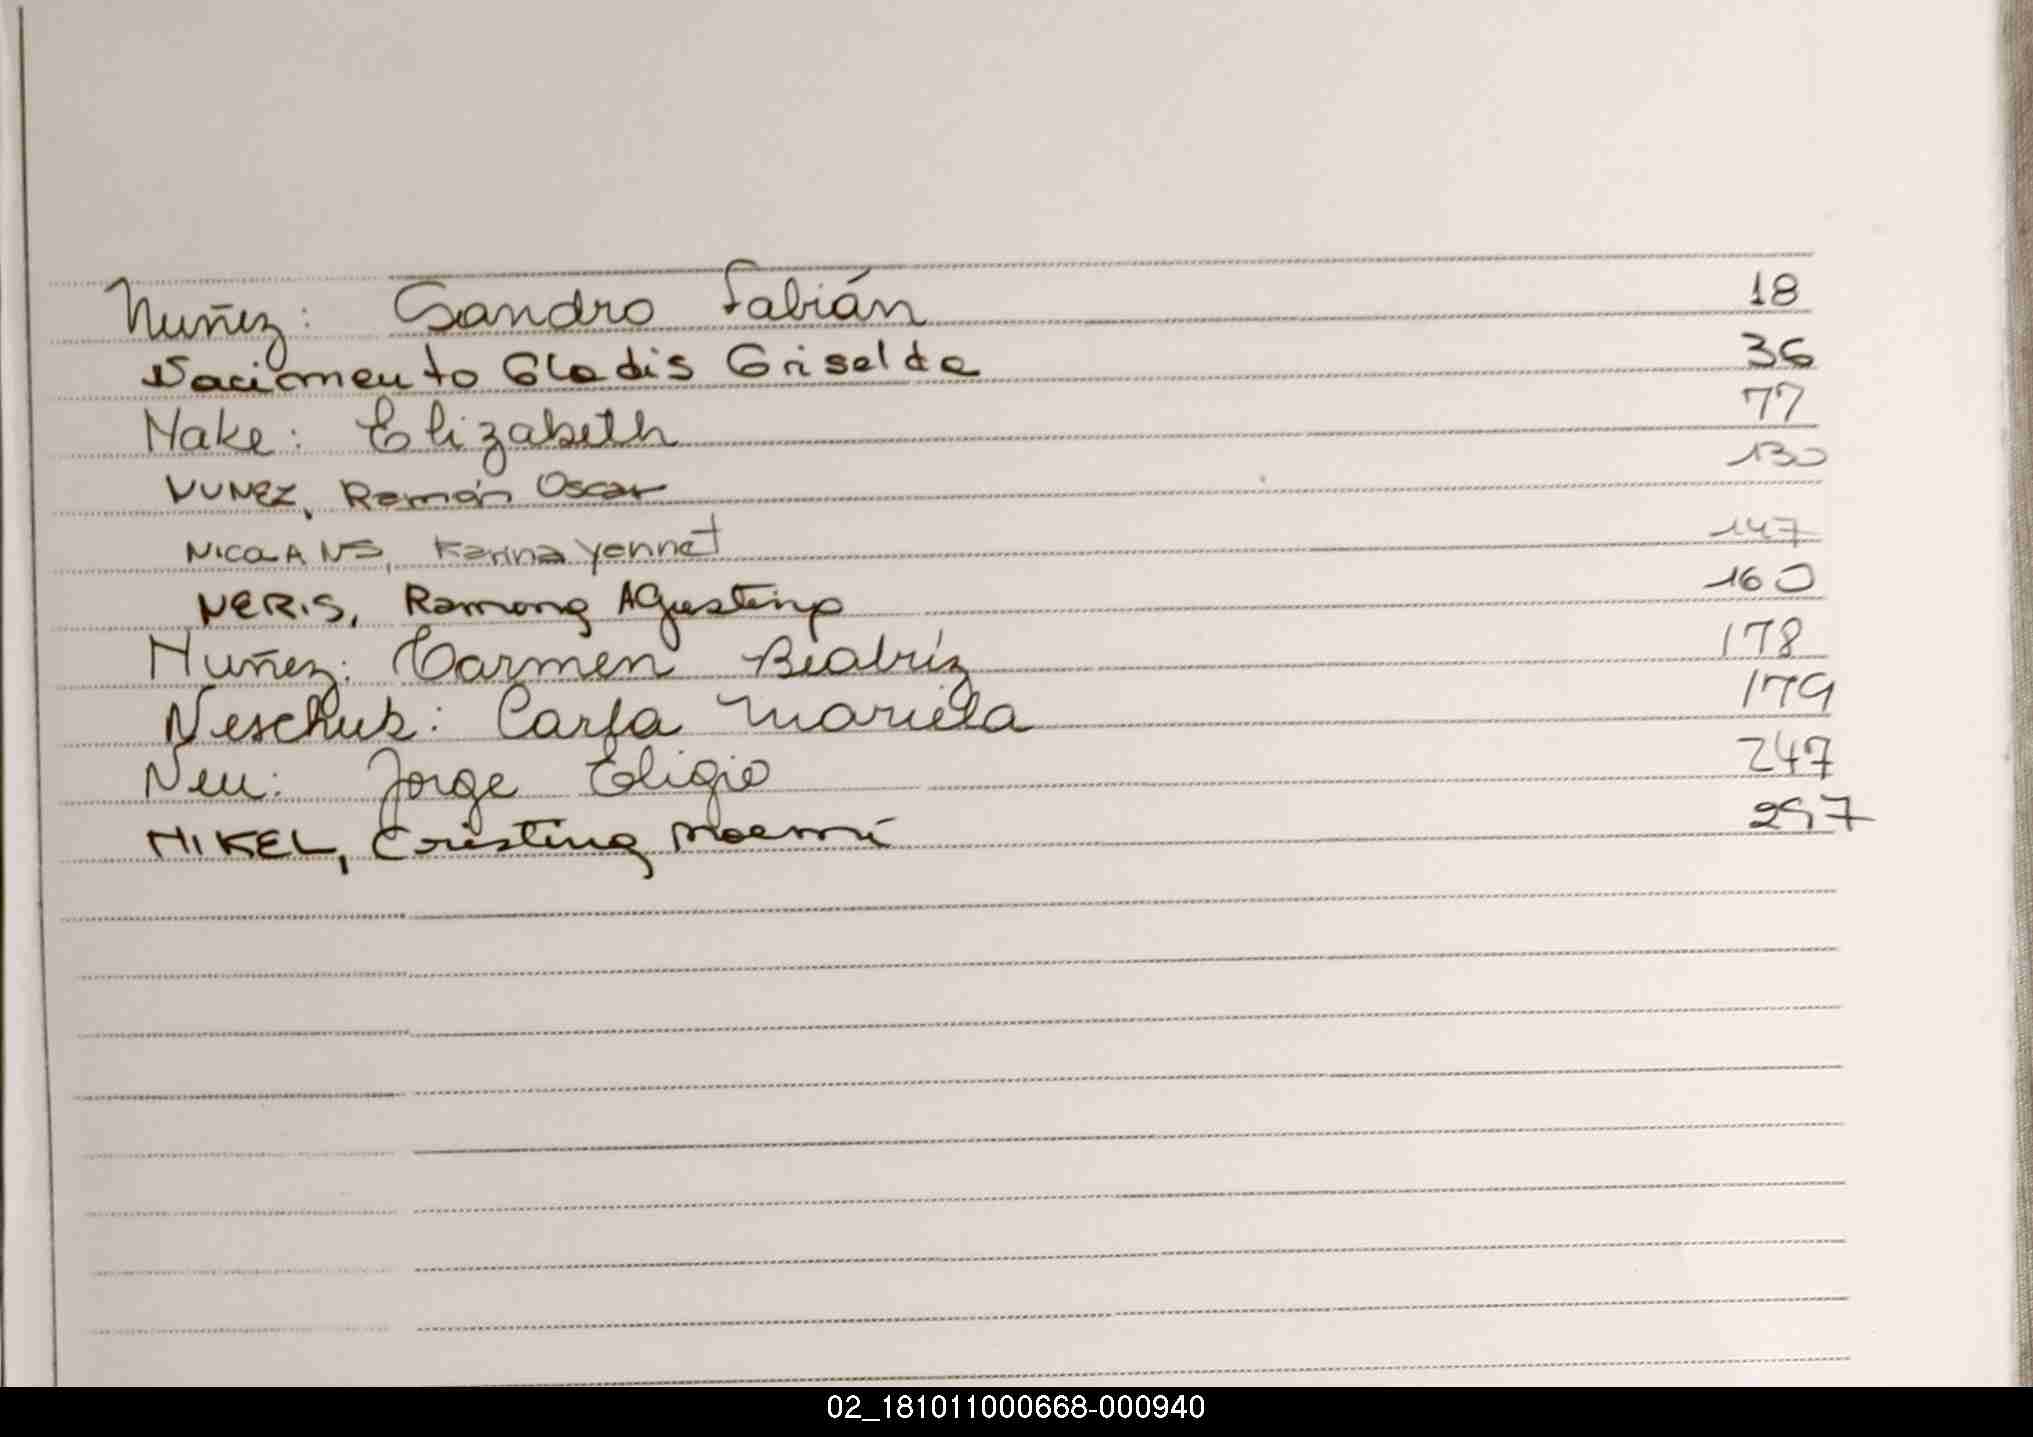 Nuñez: Sandro Fabián 18
Nacimento Gladis Griselda 36
Nake: Elizabeth 77
NUNEZ, Ramón Oscar 130
Karina Yennet 147
NERIS, Ramona Agustina 160
Nuñez: Carmen Beatríz 178
Neschuk: Carla Mariela 179
Neu: Jorge Eligio 247
NIKEL, Cristina Noemí 297
02_181011000668-000940